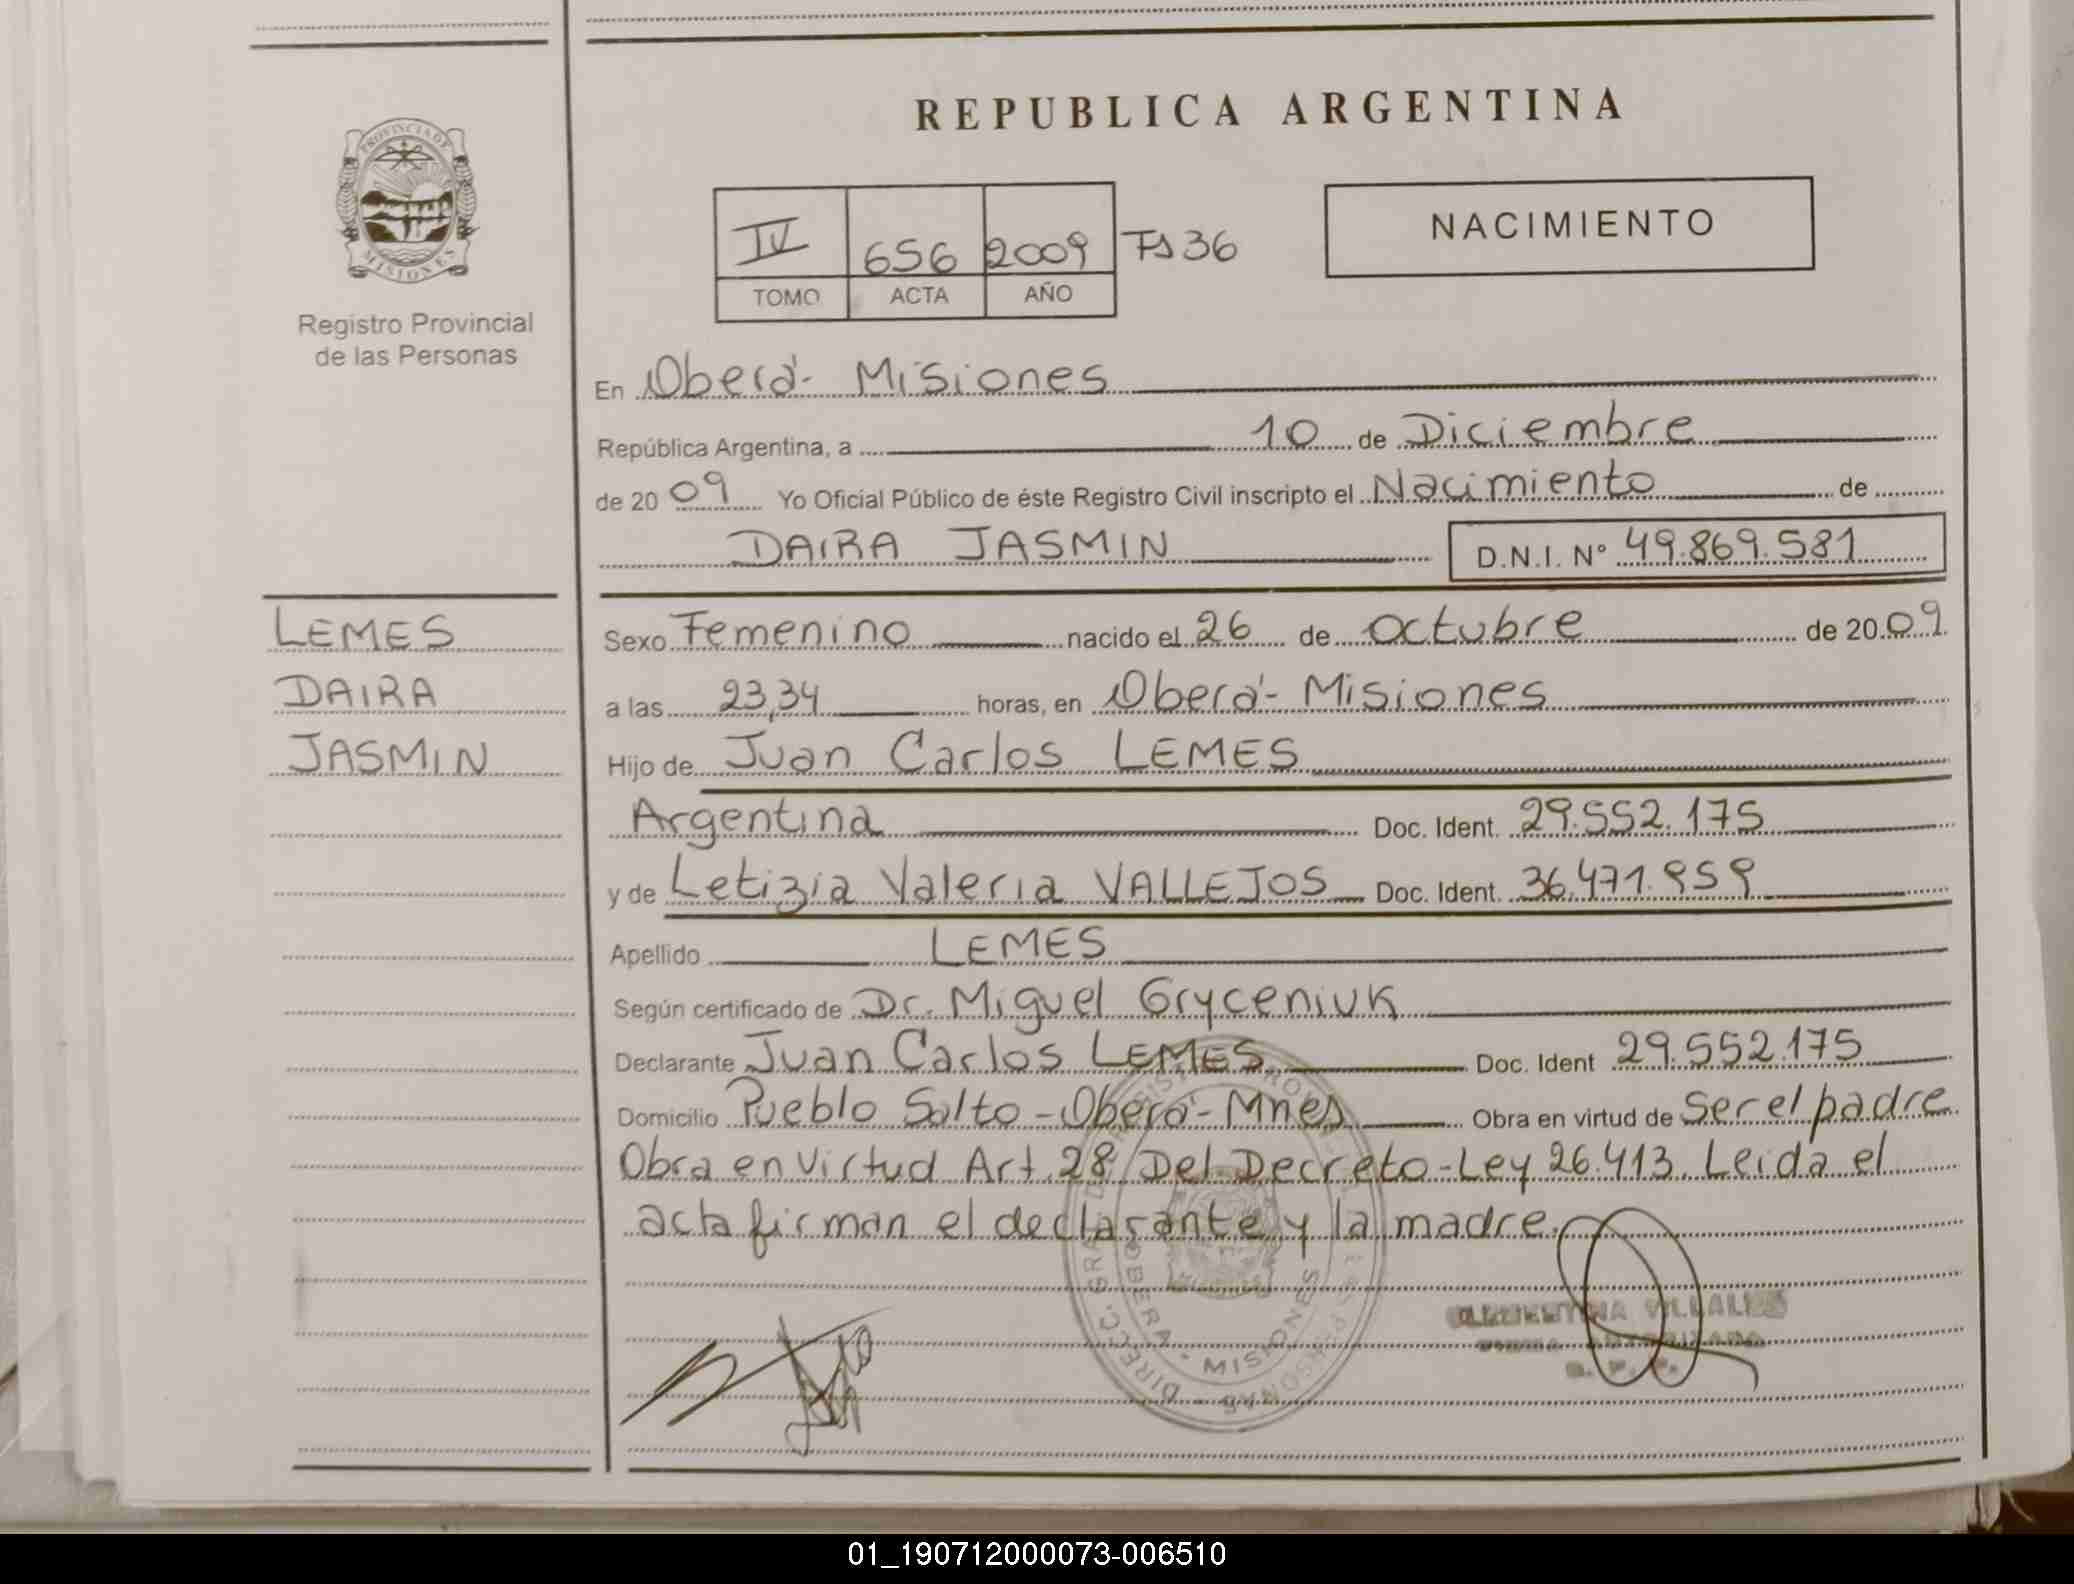 REPUBLICA ARGENTINA
PROVINCIA DE MISIONES
Registro Provincial
de las Personas
IV 656 2009 Fs 36
TOMO ACTA AÑO
NACIMIENTO
En Oberá - Misiones
República Argentina, a 10 de Diciembre
de 20 09 Yo Oficial Público de éste Registro Civil inscripto el Nacimiento de
DAIRA JASMIN D.N.I. Nº 49.869.581
LEMES
DAIRA
JASMIN
Sexo Femenino nacido el 26 de octubre de 20 09
a las 23,34 horas, en Oberá - Misiones
Hijo de Juan Carlos LEMES
Argentina Doc. Ident. 29.552.175
y de Letizia Valeria VALLEJOS Doc. Ident. 36.471.959
Apellido LEMES
Según certificado de Dr. Miguel Gryceniuk
Declarante Juan Carlos LEMES Doc. Ident 29.552.175
Domicilio Pueblo Salto - Oberá - Mnes Obra en virtud de Ser el padre
Obra en Virtud Art. 28 Del Decreto-Ley 26.413. Leida el
acta firman el declarante y la madre.
OBERA - MISIONES
01_190712000073-006510